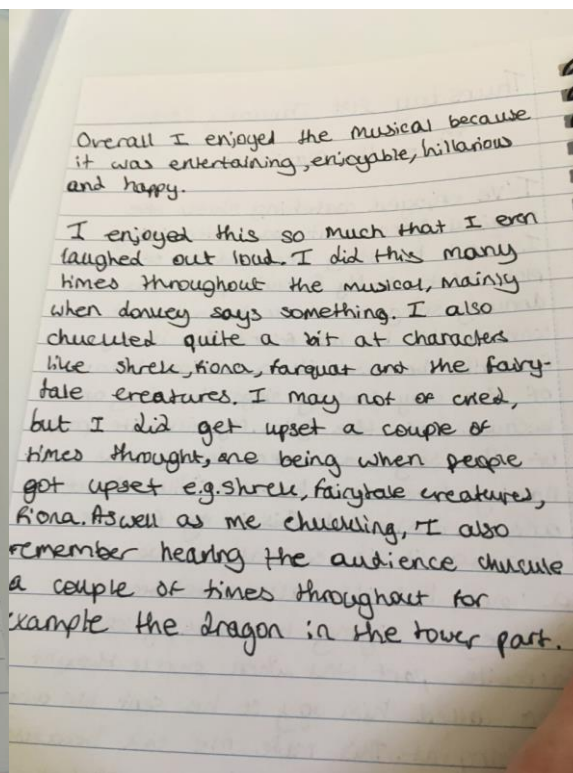 Overall I enjoyed the musical because
it was entertaining, enjoyable, hillarious
and happy.
I enjoyed this so much that I even
laughed out loud. I did this many
times throughout the musical, mainly
when donkey says something. I also
chuckled quite a bit at characters
like shrek, fiona, farquat and the fairy-
tale creatures. I may not of cried,
but I did get upset a couple of
times throught, one being when people
got upset e.g. shrek, fairytale creatures,
fiona. Aswell as me chuckling, I also
remember hearing the audience chuckle
a couple of times throughout for
example the dragon in the tower part.